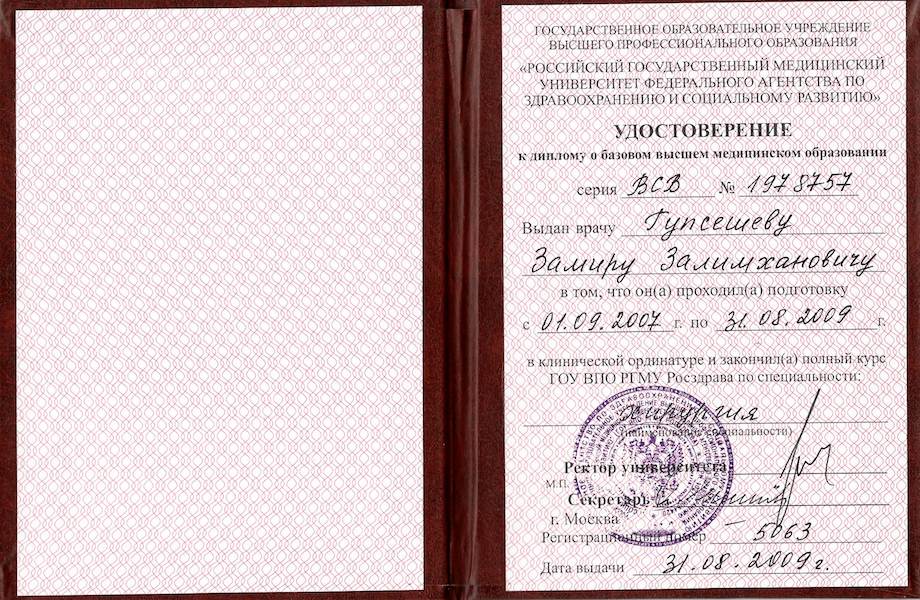 ГОСУДАРСТВЕННОЕ ОБРАЗОВАТЕЛЬНОЕ УЧРЕЖДЕНИЕ
ВЫСШЕГО ПРОФЕССИОНАЛЬНОГО ОБРАЗОВАНИЯ
«РОССИЙСКИЙ ГОСУДАРСТВЕННЫЙ МЕДИЦИНСКИЙ
УНИВЕРСИТЕТ ФЕДЕРАЛЬНОГО АГЕНТСТВА ПО
ЗДРАВООХРАНЕНИЮ И СОЦИАЛЬНОМУ РАЗВИТИЮ»
УДОСТОВЕРЕНИЕ
к диплому о базовом высшем медицинском образовании
серия ВСВ № 1978757
Выдан врачу Гупсешеву
Замиру Залимхановичу
в том, что он(а) проходил(а) подготовку
с 01.09.2007 г. по 31.08.2009 г.
в клинической ординатуре и закончил(а) полный курс
ГОУ ВПО РГМУ Росздрава по специальности:
хирургия
(наименование специальности)
Ректор университета
М.П.
Секретарь
г. Москва
Регистрационный номер – 5063
Дата выдачи 31.08.2009г.